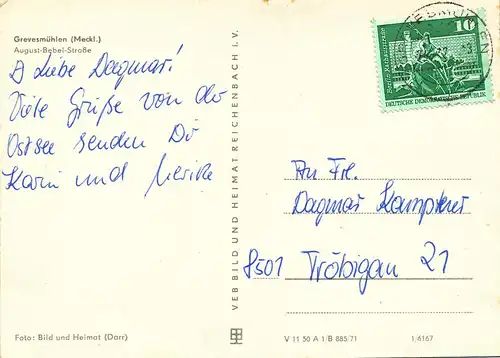 Grevesmühlen (Meckl.)
August-Bebel-Straße
Liebe Dagmar!
Viele Grüße von der
Ostsee senden Dir
Karin und
An Frl.
Dagmar
8501 Tröbigau 21
VEB BILD UND HEIMAT REICHENBACH I. V.
Foto: Bild und Heimat (Darr)
V 11 50 A 1/B 885/71
1/6167
10
Berlin · Neptunbrunnen
DEUTSCHE DEMOKRATISCHE REPUBLIK